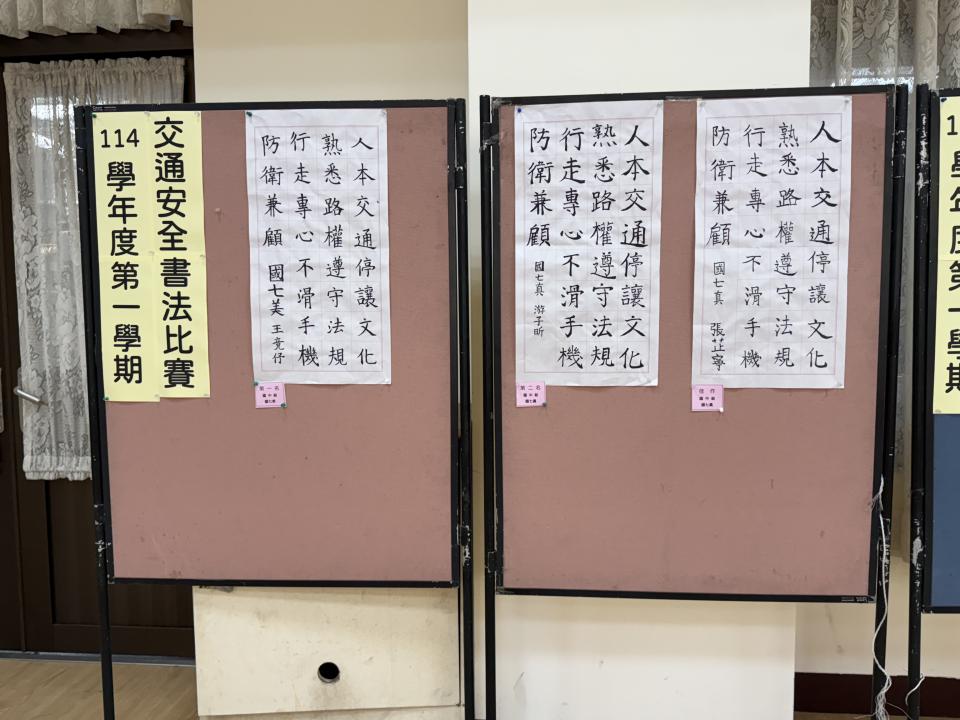 交通安全書法比賽
114學年度第一學期
人本交通停讓文化
熟悉路權遵守法規
行走專心不滑手機
防衛兼顧 國七美 王竞伃
第一名
國中組
國七美
人本交通停讓文化
熟悉路權遵守法規
行走專心不滑手機
防衛兼顧 國七真 游子昕
第二名
國中組
國七真
人本交通停讓文化
熟悉路權遵守法規
行走專心不滑手機
防衛兼顧 國七真 張芷寧
佳作
國中組
國七真